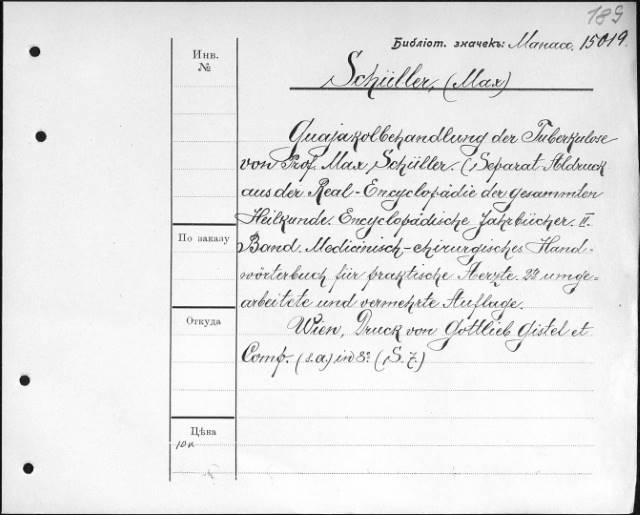 189
Библіот. значекъ: Манасс. 15019.
Инв.
№
Schüller, (Max)
Guajakolbehandlung der Tuberkulose
von Prof. Max Schüller. (Separat-Abdruck
aus der Real-Encyclopädie der gesammten
Heilkunde. Encyclopädische Jahrbücher. II.
По заказу
Band. Medicinisch-chirurgisches Hand-
wörterbuch für praktische Aerzte. 2te umge-
arbeitete und vermehrte Auflage.
Откуда
Wien, Druck von Gottlieb Gistel et
Comp. (s.a.) in 8º. (S. 7.)
Цѣна
10к